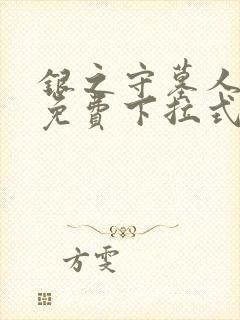 银之守墓人
免费下拉式
方雯